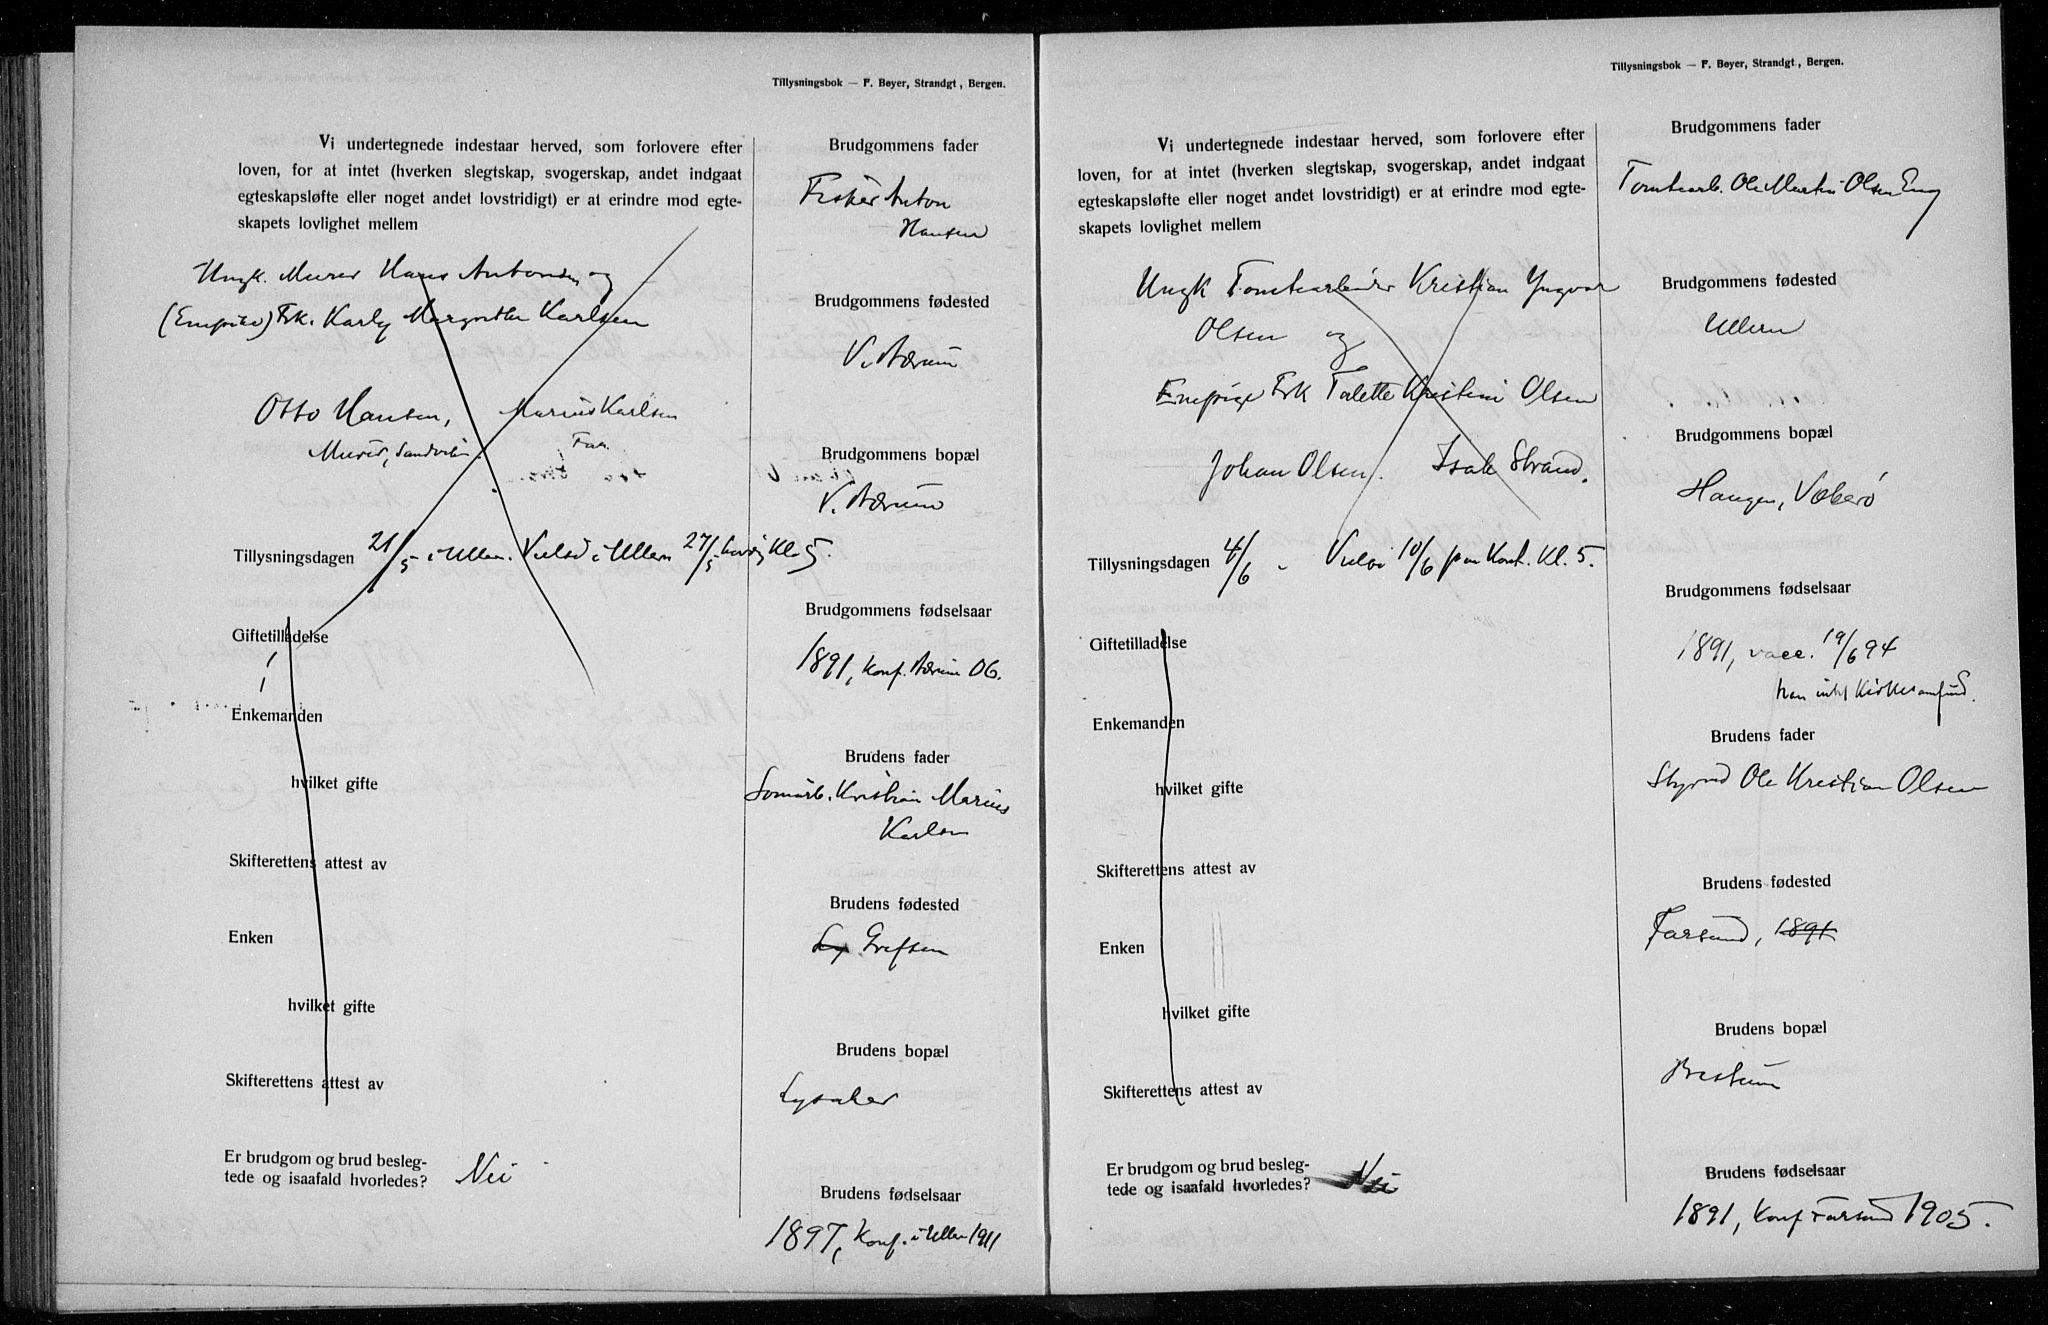 Tillysningsbok — F. Bøyer, Strandgt, Bergen.
Vi undertegnede indestaar herved, som forlovere efter
loven, for at intet (hverken slegtskap, svogerskap, andet indgaat
egteskapsløfte eller noget andet lovstridigt) er at erindre mod egte-
skapets lovlighet mellem
Ungk. Murer Hans Antonsen og
(Enepike) Frk. Karly Margrethe Karlsen
Otto Hansen, Marius Karlsen
Murer, Sandviken. Far.
Tillysningsdagen 21/5 i Ullern. Vielse i Ullern 27/5 Kl 5
Giftetilladelse
Enkemanden
hvilket gifte
Skifterettens attest av
Enken
hvilket gifte
Skifterettens attest av
Er brudgom og brud besleg-
tede og isaafald hvorledes? Nei
Brudgommens fader
Fisker Anton
Hansen
Brudgommens fødested
V. Bærum
Brudgommens bopæl
V. Bærum
Brudgommens fødselsaar
1891, Konf. Bærum 06.
Brudens fader
Kristian Marius
Karlsen
Brudens fødested
Ly Grefsen
Brudens bopæl
Lysaker
Brudens fødselsaar
1897, Konf. i Ullern 1911
Tillysningsbok — F. Bøyer, Strandgt, Bergen.
Vi undertegnede indestaar herved, som forlovere efter
loven, for at intet (hverken slegtskap, svogerskap, andet indgaat
egteskapsløfte eller noget andet lovstridigt) er at erindre mod egte-
skapets lovlighet mellem
Ungk Tomtearbeider Kristian Yngvar
Olsen og
Enepige Frk Talette Kristine Olsen
Johan Olsen. Isak Strand.
Tillysningsdagen 4/6. 10/6 paa Kont. Kl. 5.
Giftetilladelse
Enkemanden
hvilket gifte
Skifterettens attest av
Enken
hvilket gifte
Skifterettens attest av
Er brudgom og brud besleg-
tede og isaafald hvorledes? Nei
Brudgommens fader
Tomtearb. Ole Martin Olsen Eng
Brudgommens fødested
Ullern
Brudgommens bopæl
Haugen, Vækerø
Brudgommens fødselsaar
1891, vacc. 19/6 94
Kirkesamfund.
Brudens fader
Styrmd Ole Kristian Olsen
Brudens fødested
Farsund, 1891
Brudens bopæl
Bestum
Brudens fødselsaar
1891, Konf Farsund 1905.